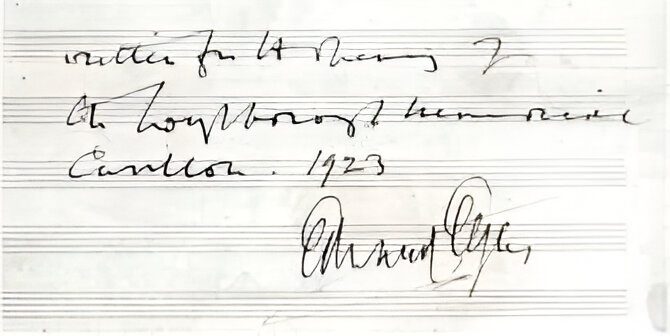 written for the opening of
the Loughborough memorial
Carillon. 1923
Edward Elgar